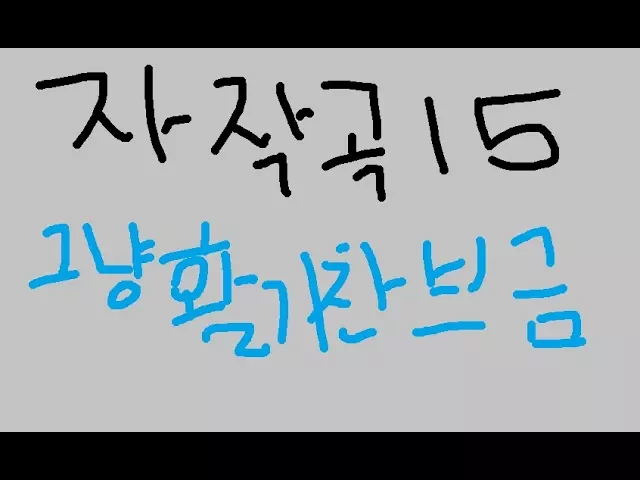 자작곡15
그냥 활기찬 브금